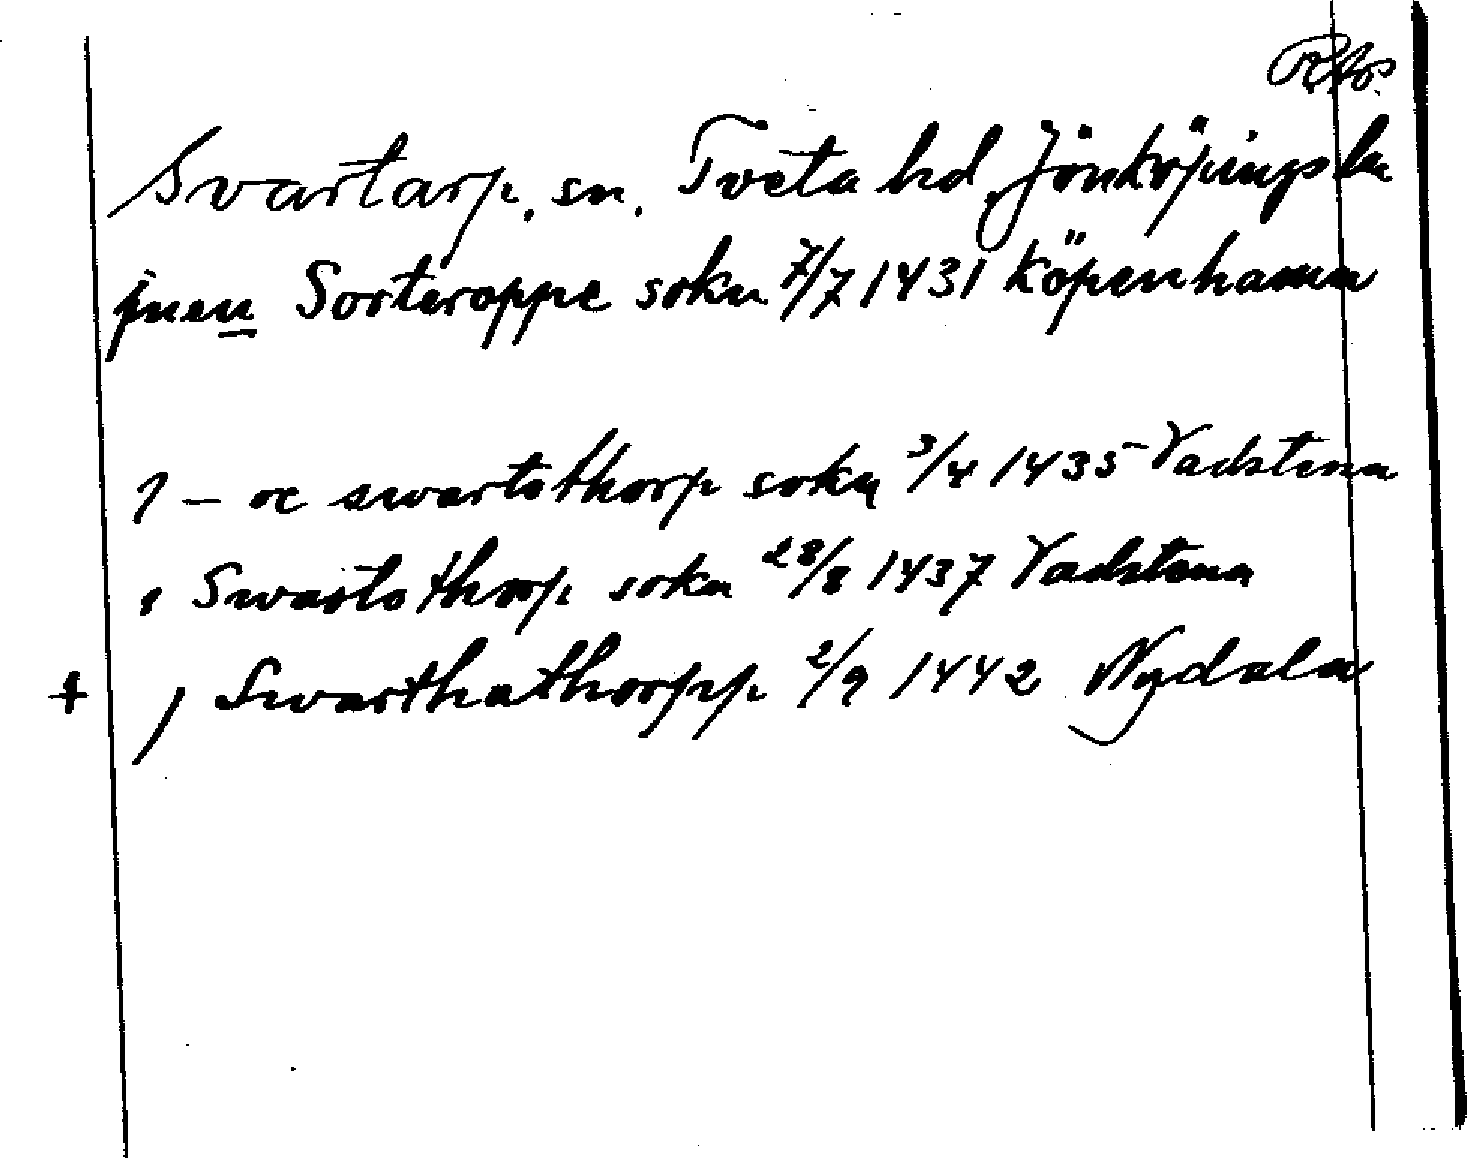 Svartarp. sn. Tveta hd, Jönköpings län
jnen Sorteroppe sokn 7/7 1431 Köpenhamn
J - oc swartothorp sokn 3/4 1435 Vadstena
i Swartothorp sokn 28/8 1437 Vadstena
+ j Swarthathorpp 2/9 1442 Nydala